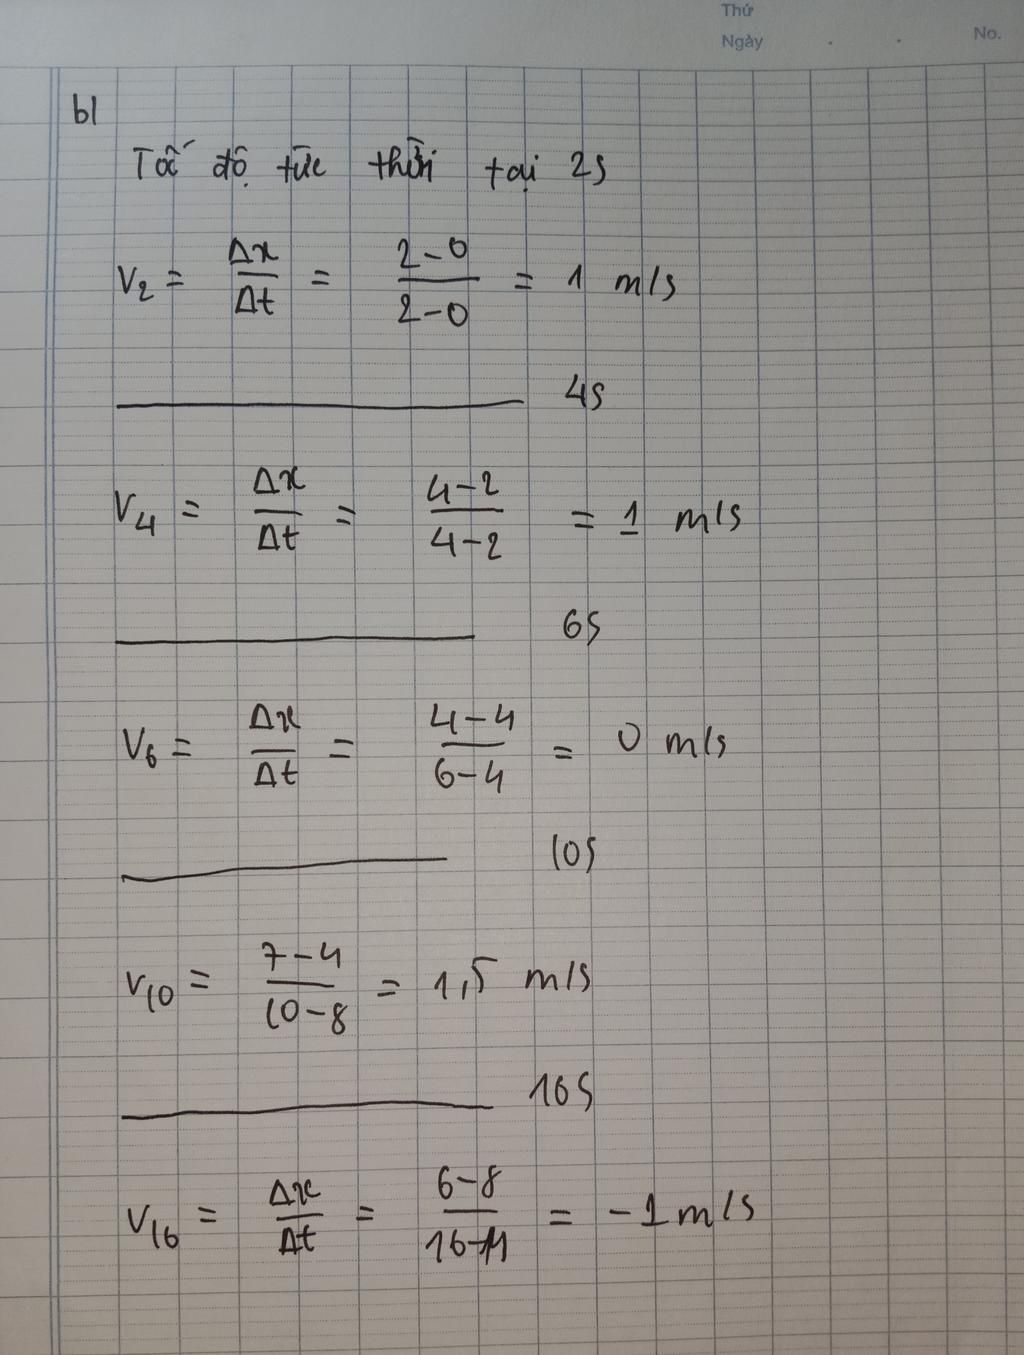 Thứ
Ngày . .
No.
b1
Tốc độ tức thời tại 2s
V₂ = Δx/Δt = (2-0)/(2-0) = 1 m/s
4s
V₄ = Δx/Δt = (4-2)/(4-2) = 1 m/s
6s
V₆ = Δx/Δt = (4-4)/(6-4) = 0 m/s
10s
V₁₀ = (7-4)/(10-8) = 1,5 m/s
16s
V₁₆ = Δx/Δt = (6-8)/ = -1 m/s